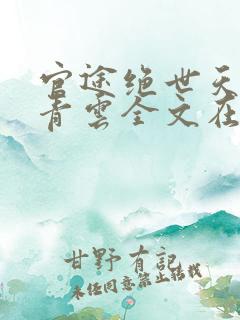 官途绝世天
青云全文在
甘野有記
未经同意禁止转载